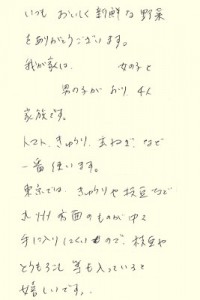 いつも おいしく 新鮮な 野菜
をありがとうございます。
我が家は、 女の子と
男の子がおり、4人
家族です。
トマト、きゅうり、玉ねぎ、など
一番使います。
東京では、きゅうりや枝豆など
九州方面のものが中々
手に入りにくいもので、枝豆や
とうもろこし等も入っていると
嬉しいです。